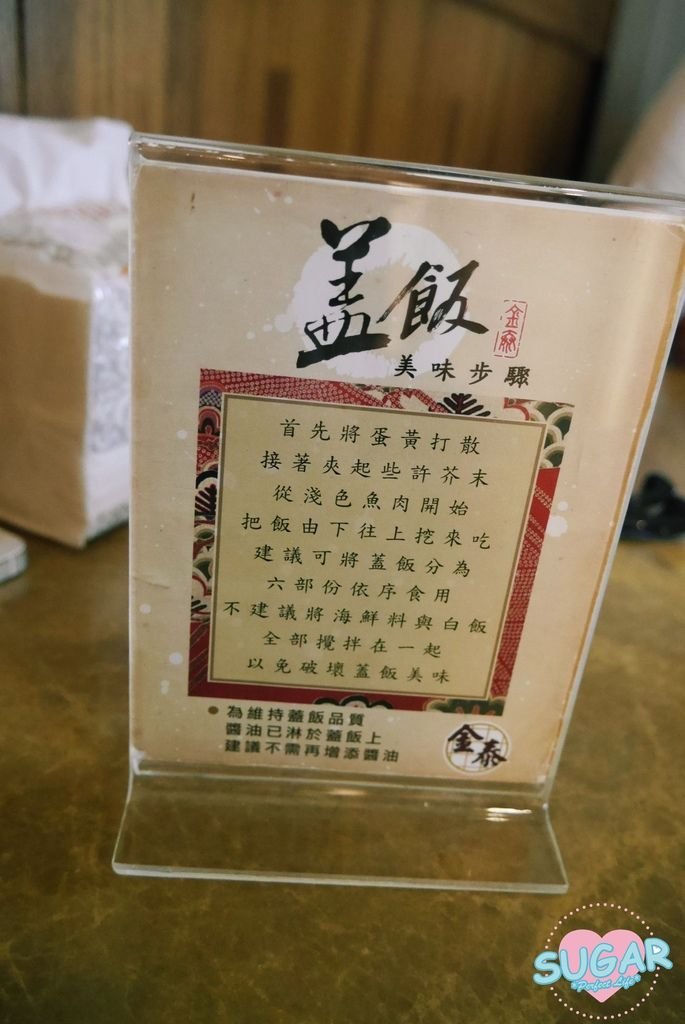 盖飯
金泰
美味步驟
首先將蛋黃打散
接著夾起些許芥末
從淺色魚肉開始
把飯由下往上挖來吃
建議可將蓋飯分為
六部份依序食用
不建議將海鮮料與白飯
全部攪拌在一起
以免破壞蓋飯美味
為維持蓋飯品質
醬油已淋於蓋飯上
建議不需再增添醬油
金泰
SUGAR
*Perfect Life*